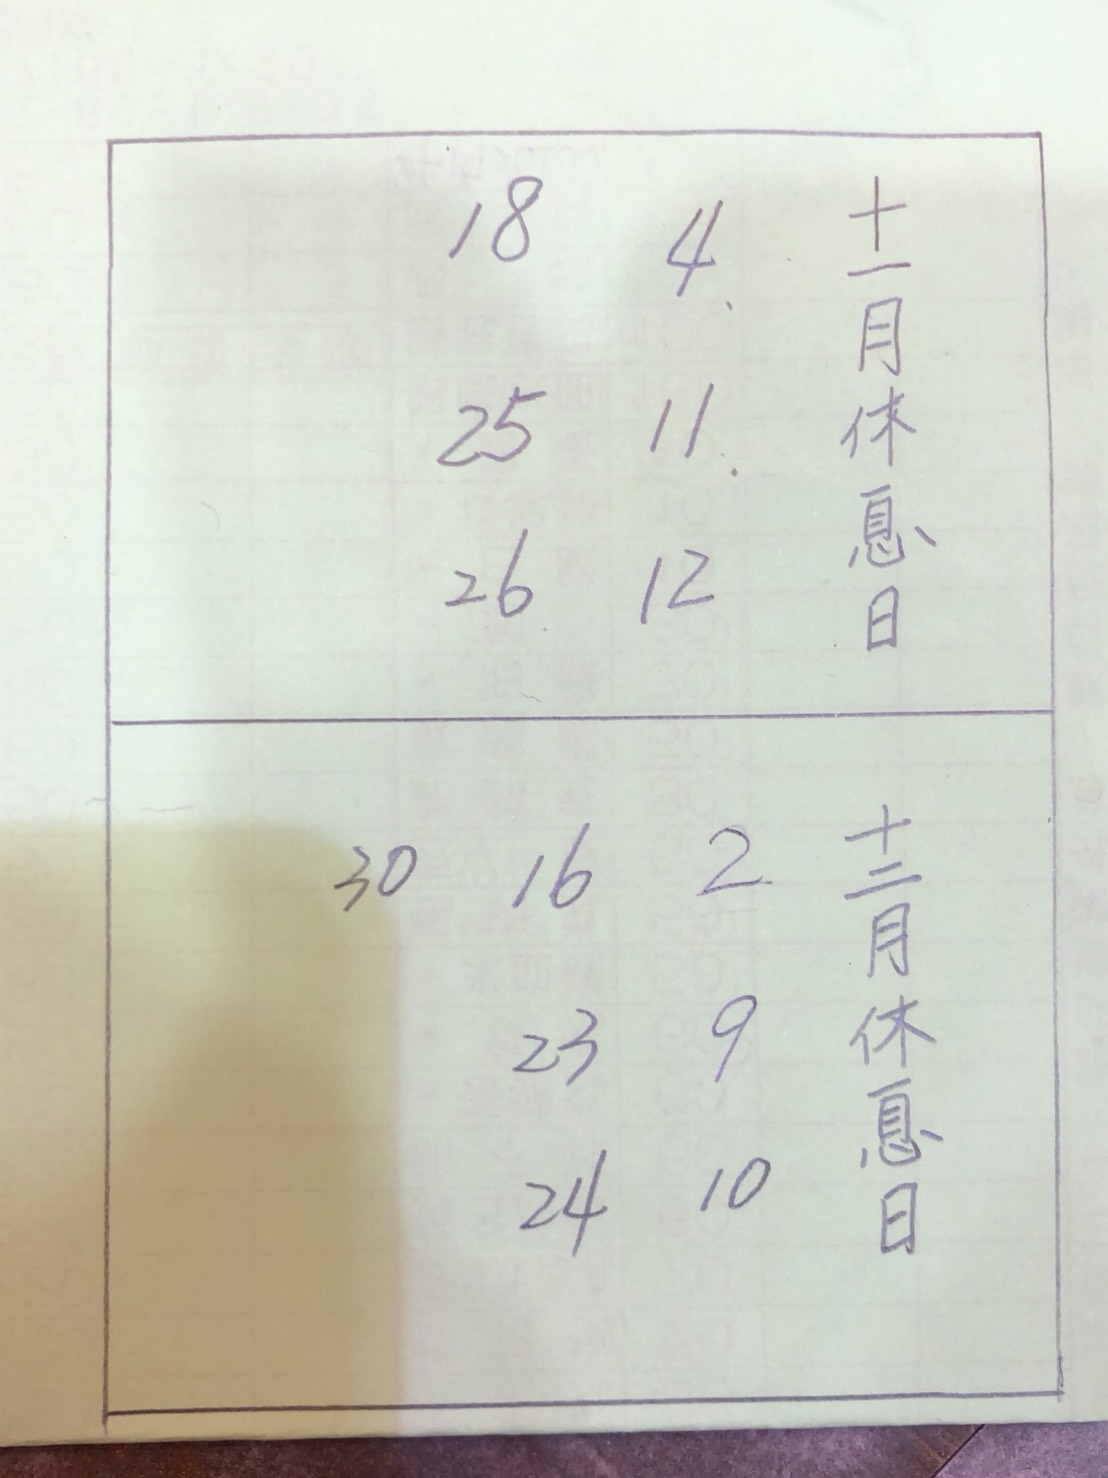 十一月休息日
4
11
12
18
25
26
十二月休息日
2
9
10
16
23
24
30